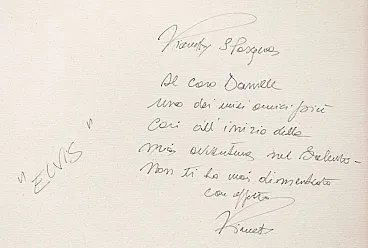 Al caro Daniele
uno dei miei amici più
cari all'inizio della
mia avventura nel Salento.
Non ti ho mai dimenticato
con affetto
"ELVIS"